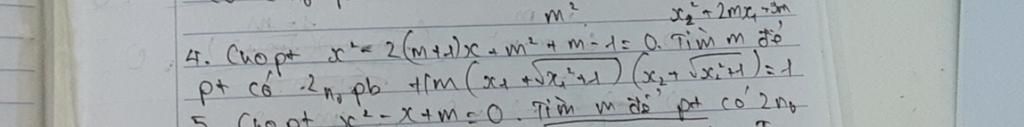 m² x₂² + 2mx₁ + 3m
4. Cho pt x² - 2(m+1)x + m² + m - 1 = 0. Tìm m để
pt có 2 nₒ pb t/m (x₁ + √x₁²+1)(x₂ + √x₂²+1) = 1
5. Cho pt x² - x + m = 0. Tìm m để pt có 2 nₒ